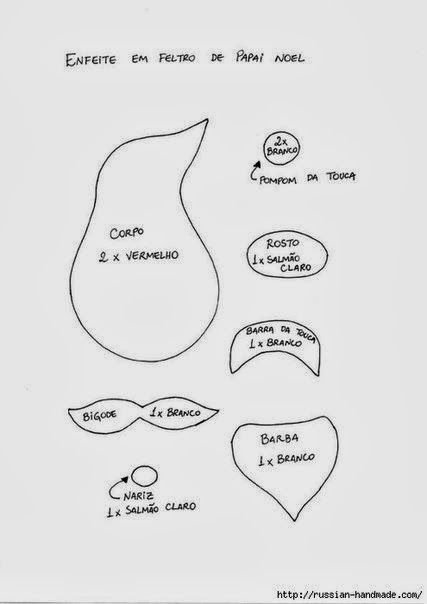 ENFEITE EM FELTRO DE PAPAI NOEL
2x
BRANCO
POMPOM DA TOUCA
CORPO
2 x VERMELHO
ROSTO
1x SALMÃO
CLARO
BARRA DA TOUCA
1x BRANCO
BIGODE 1x BRANCO
BARBA
1x BRANCO
NARIZ
1x SALMÃO CLARO
http://russian-handmade.com/